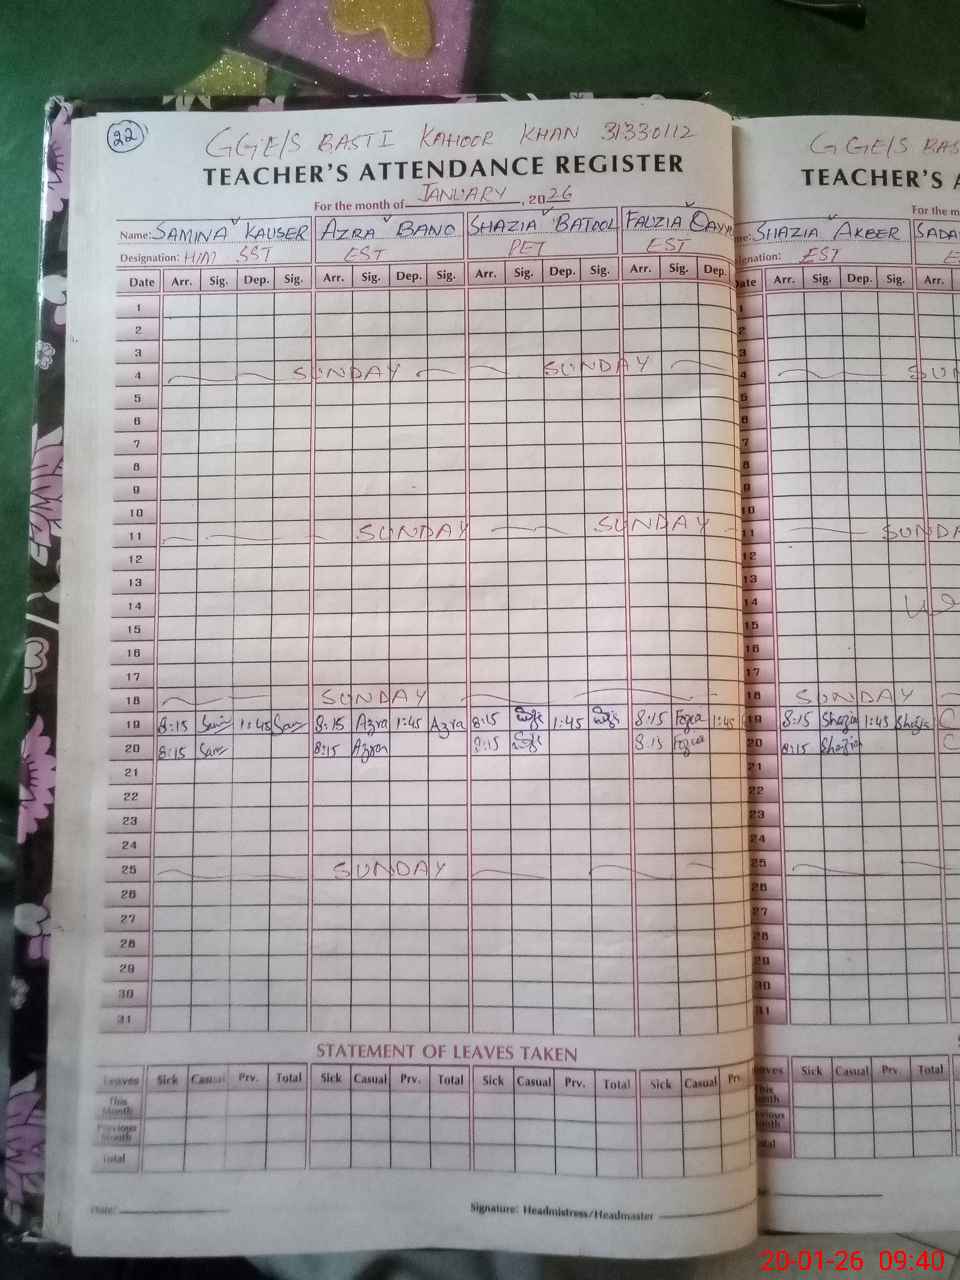 22
GGE/S BASTI KAHOOR KHAN 31330112
TEACHER'S ATTENDANCE REGISTER
For the month of JANUARY, 2026
Name: SAMINA KAUSER AZRA BANO SHAZIA BATOOL FAUZIA QAYY
Designation: H/M SST EST PET EST
Date Arr. Sig. Dep. Sig. Arr. Sig. Dep. Sig. Arr. Sig. Dep. Sig. Arr. Sig. Dep.
1
2
3
4 SUNDAY SUNDAY
5
6
7
8
9
10
11 SUNDAY SUNDAY
12
13
14
15
16
17
18 SUNDAY
19 8:15 1:45 8:15 Azra 1:45 Azra 8:15 1:45 8:15 Fozia 1:45
20 8:15 8:15 Azra 8:15 8:15 Fozia
21
22
23
24
25 SUNDAY
26
27
28
29
30
31
STATEMENT OF LEAVES TAKEN
Leaves Sick Casual Prv. Total Sick Casual Prv. Total Sick Casual Prv. Total Sick Casual Prv.
This Month
Previous Month
Total
Date:
Signature: Headmistress/Headmaster
GGE/S BAS
TEACHER'S A
For the m
me: SHAZIA AKBER SADA
ignation: EST E
Date Arr. Sig. Dep. Sig. Arr.
1
2
3
4 SUN
5
6
7
8
9
10
11 SUNDA
12
13
14
15
16
17
18 SUNDAY
19 8:15 Shazia 1:45 Shazia C
20 8:15 Shazia C
21
22
23
24
25
26
27
28
29
30
31
S
eaves Sick Casual Prv. Total
This onth
evious onth
otal
20-01-26 09:40